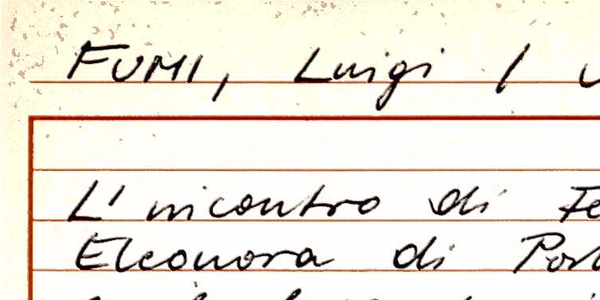 FUMI, Luigi /
L'incontro di Fe
Eleonora di Port